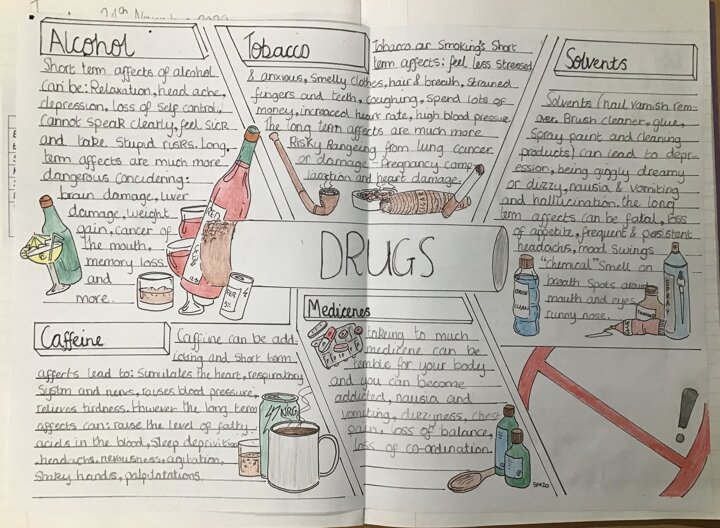 24th November 2020
Alcohol
Short term affects of alcohol
can be: Relaxation, head ache,
depression, loss of self control,
cannot speak clearly, feel sick
and take stupid risks. Long
term affects are much more
dangerous concidering:
brain damage, liver
damage, weight
gain, cancer of
the mouth,
memory loss
and
more.
BEER
5%
Tobacco
Tobacco or Smoking's Short
term affects: feel less stressed
& anxious, smelly clothes, hair & breath, strained
fingers and teeth, coughing, spend lots of
money, increased heart rate, high blood pressure.
The long term affects are much more
Risky Rangeing from lung cancer
or damage, Pregnancy comp-
lacation and heart damage.
Solvents
Solvents (nail varnish rem-
over, Brush cleaner, glue,
Spray paint and cleaning
products) can lead to depr-
ession, being giggly dreamy
or dizzy, nausia & vomiting
and hallucination. the long
term affects can be fatal, loss
of appetite, frequent & persistent
headachs, mood swings
"chemical" Smell on
breath Spots around
mouth and eyes
runny nose.
BRUSH
CLEAN
SPRAY
DRUGS
Caffeine
Caffeine can be add-
icking and short term
affects lead to: Stimulates the heart, respiratory
System and nervs, raises blood pressure,
relieves tirdness. However the long term
affects can: raise the level of fatty
acids in the blood, Sleep deprivition
, headachs, nervousness, agitation,
shakey hands, palpatations.
NRG
Medicenes
takeing to much
medicene can be
terrible for your body
and you can become
addicted, nausia and
vomiting, dizzyness, chest
pain, loss of balance,
loss of co-ordination.
SM20
!